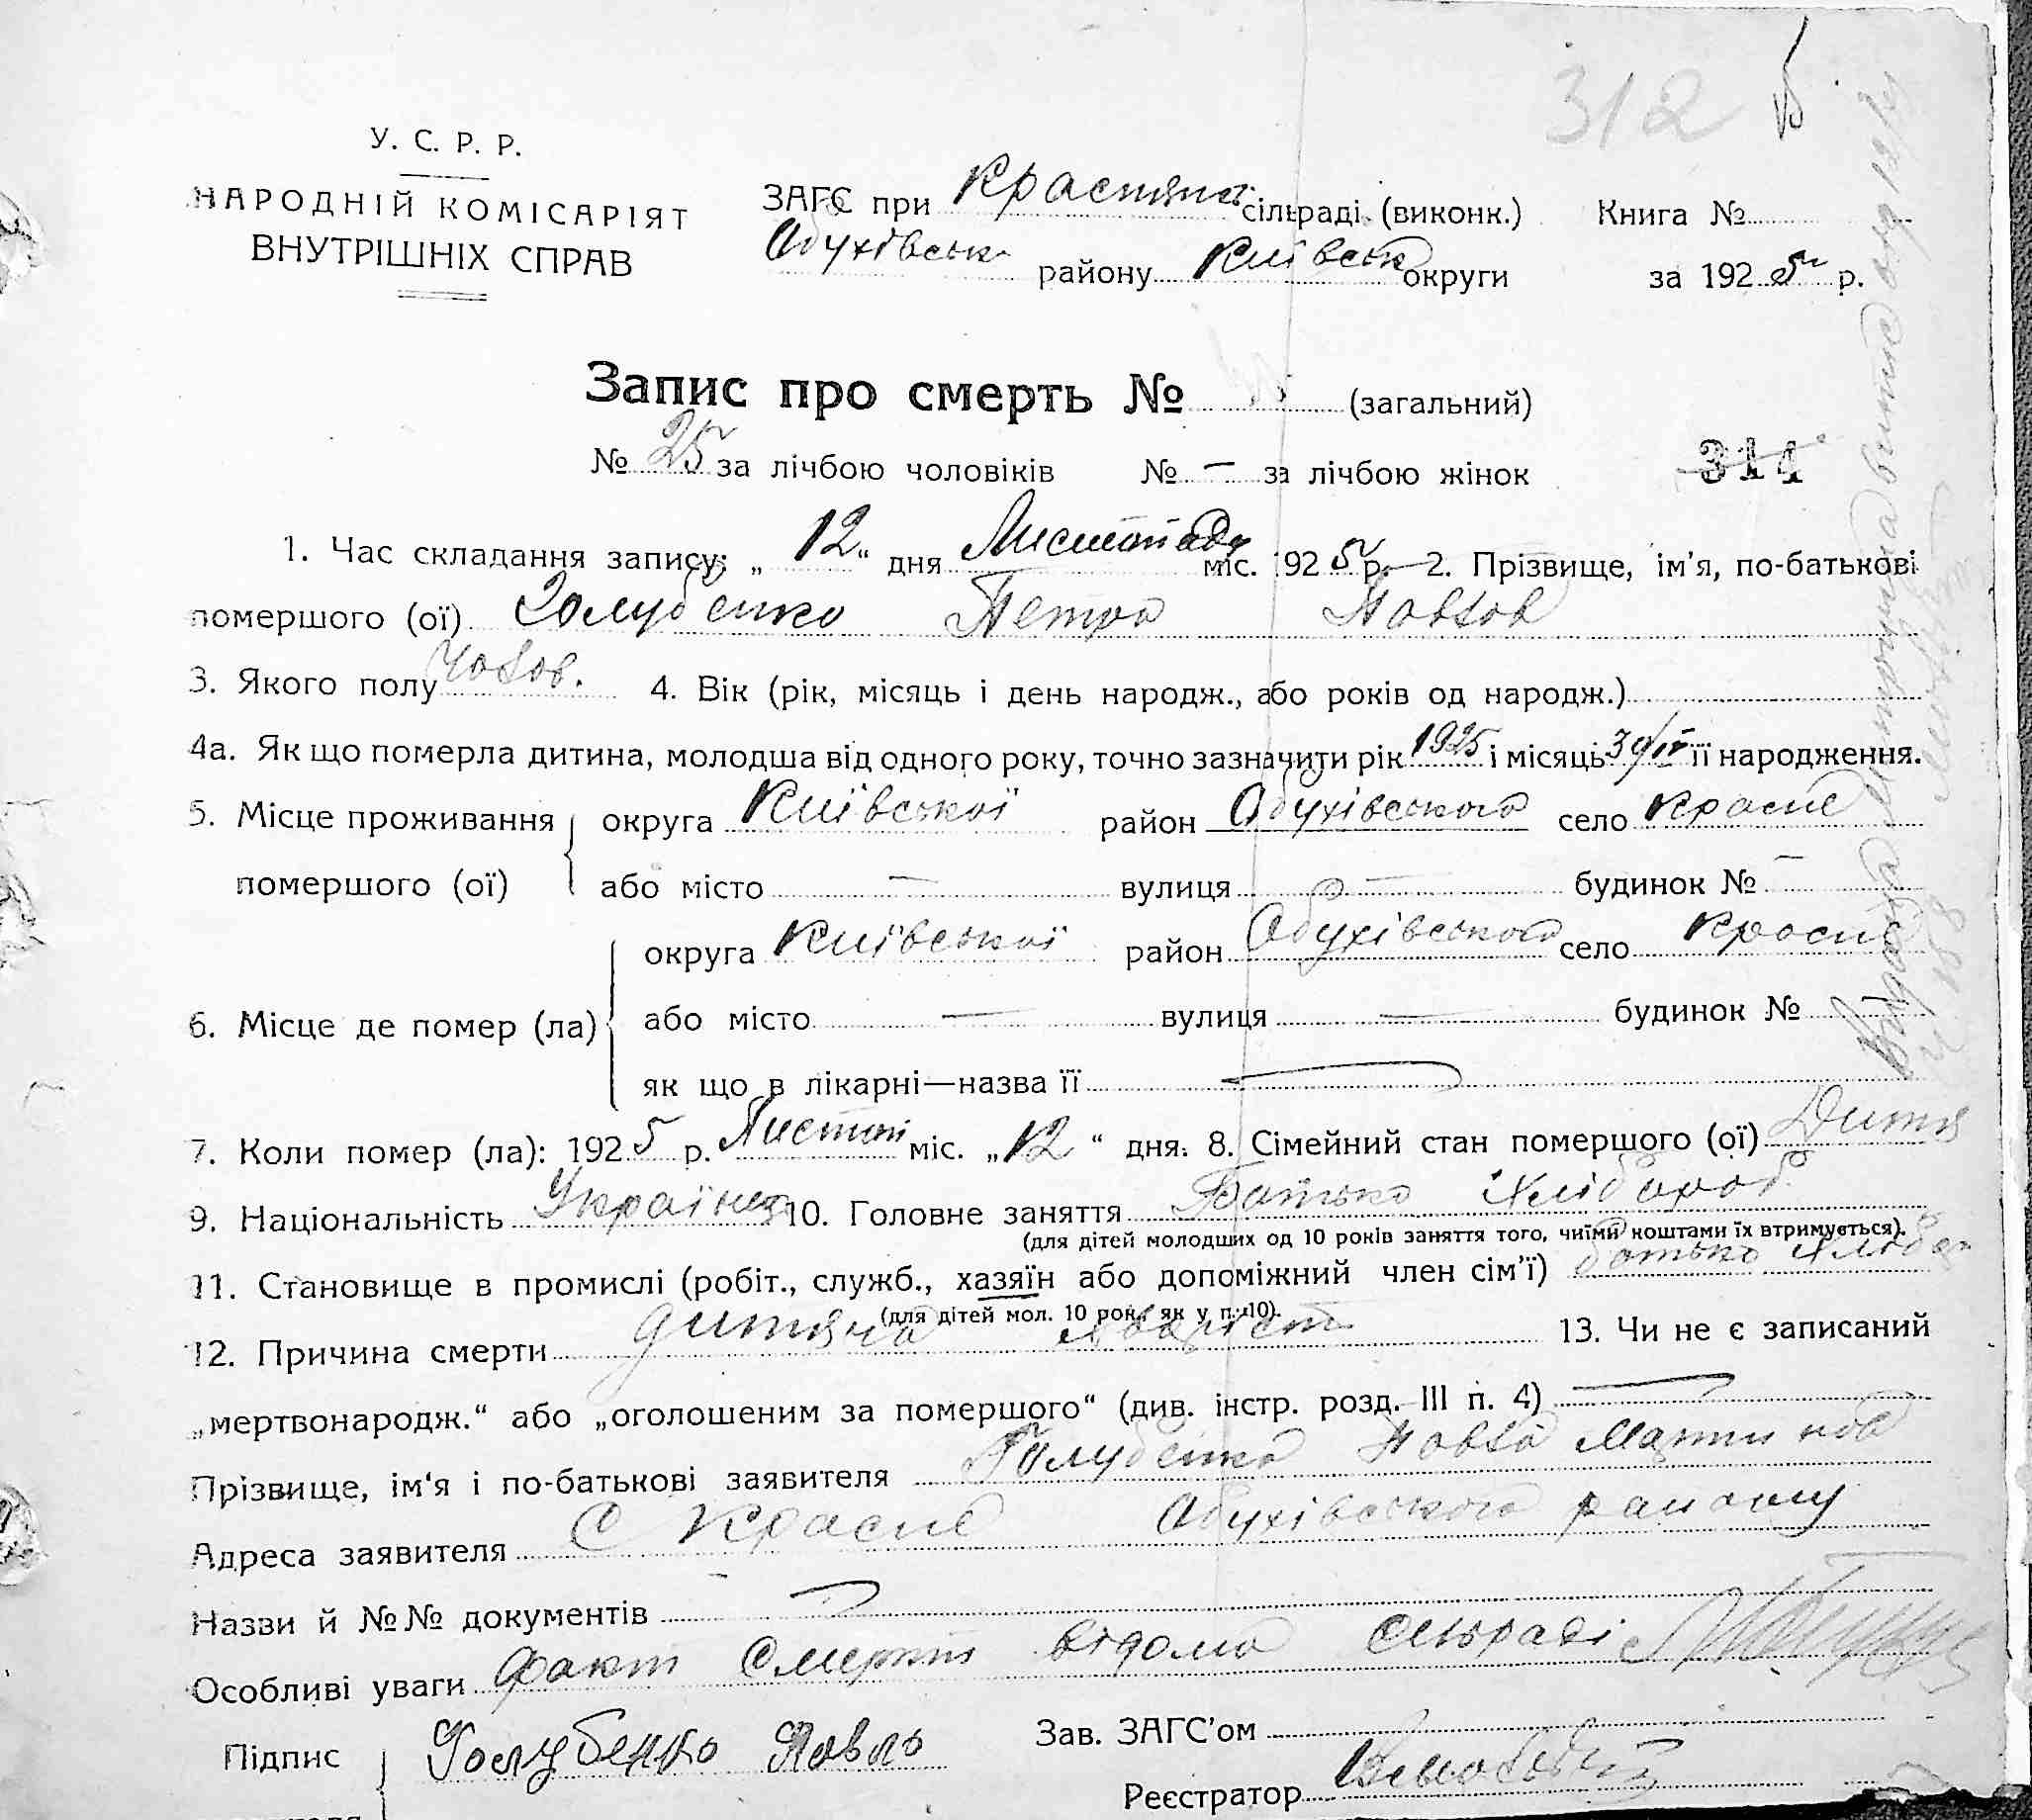 312
У. С. Р. Р.
НАРОДНІЙ КОМІСАРІЯТ
ВНУТРІШНІХ СПРАВ
ЗАГС при Краснян сільраді (виконк.) Книга №
Обухівськ району Київськ округи за 1925 р.
Запис про смерть № (загальний)
№ 25 за лічбою чоловіків № — за лічбою жінок
314
1. Час складання запису: „12“ дня Листопаду міс. 1925 р. — 2. Прізвище, ім'я, по-батькові
помершого (ої) Голубенко Петро Павлов
3. Якого полу Чолов. 4. Вік (рік, місяць і день народж., або років од народж.)
4а. Як що померла дитина, молодша від одного року, точно зазначити рік 1925 і місяць її народження.
5. Місце проживання помершого (ої) округа Київської район Обухівського село Красне
або місто — вулиця — будинок № —
6. Місце де помер (ла) округа Київської район Обухівського село Красне
або місто — вулиця — будинок №
як що в лікарні—назва її —
7. Коли помер (ла): 1925 р. Листоп міс. „12“ дня. 8. Сімейний стан помершого (ої) Дитя
9. Національність Українец 10. Головне заняття Батько Хлібороб
(для дітей молодших од 10 років заняття того, чиїми коштами їх втримується).
11. Становище в промислі (робіт., служб., хазяїн або допоміжний член сім'ї) батько хлібор
(для дітей мол. 10 рок. як у п. 10).
12. Причина смерти дитяча 13. Чи не є записаний
„мертвонародж.“ або „оголошеним за помершого“ (див. інстр. розд. III п. 4) —
Прізвище, ім'я і по-батькові заявителя Голубенко Павло Мартинов
Адреса заявителя С Красне Обухівського району
Назви й №№ документів —
Особливі уваги Факт Смерти відомо сільраді
Підпис Голубенко Павло Зав. ЗАГС'ом
Реєстратор